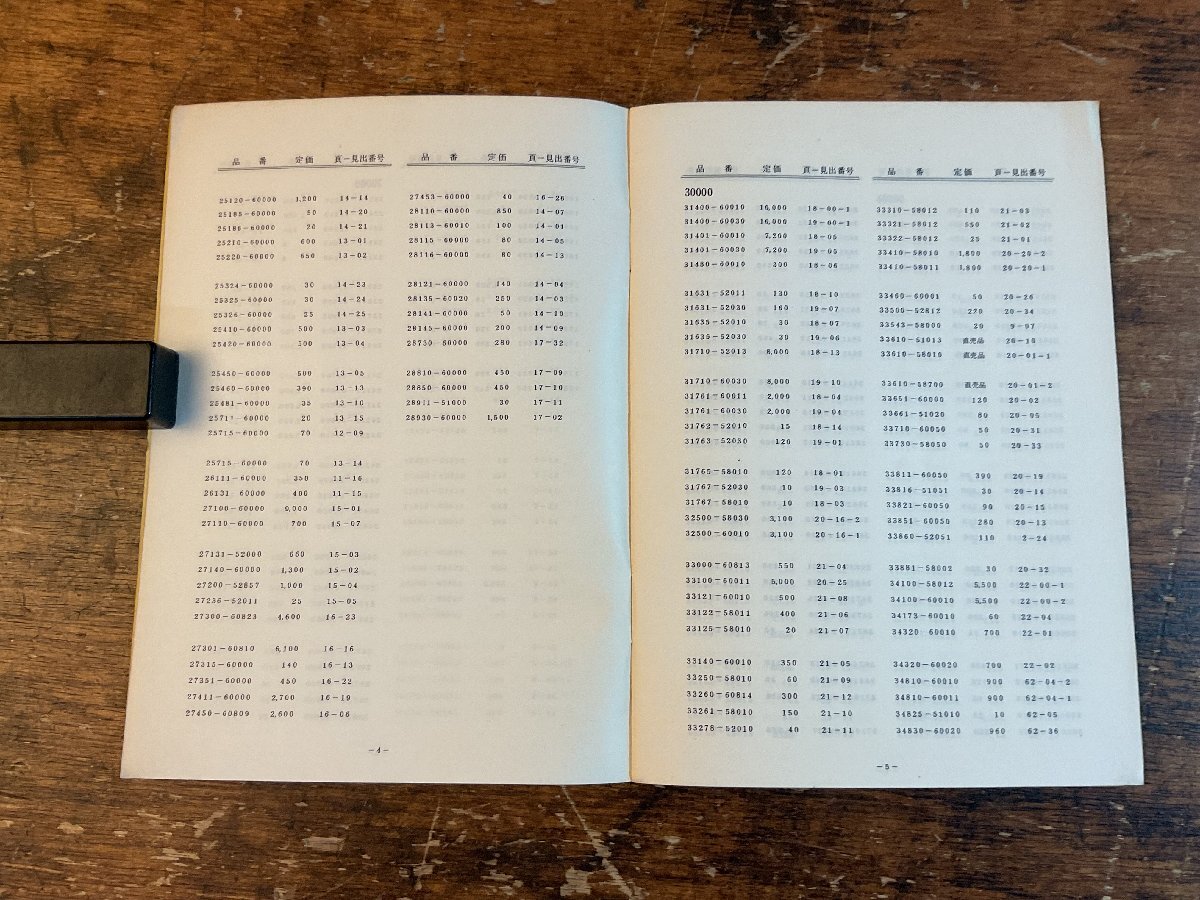 品 番 定価 頁-見出番号
25120-60000 1,200 14-14
25185-60000 50 14-20
25186-60000 20 14-21
25210-60000 600 13-01
25220-60000 650 13-02
25324-60000 30 14-23
25325-60000 30 14-24
25326-60000 25 14-25
25410-60000 500 13-03
25420-60000 500 13-04
25450-60000 500 13-05
25460-60000 390 13-13
25481-60000 35 13-10
25711-60000 20 13-15
25715-60000 70 12-09
25715-60000 70 13-14
26111-60000 350 11-16
26131-60000 400 11-15
27100-60000 9,000 15-01
27110-60000 700 15-07
27131-52000 650 15-03
27140-60000 1,300 15-02
27200-52857 1,000 15-04
27256-52011 25 15-05
27300-60823 4,600 16-23
27301-60810 6,100 16-16
27315-60000 140 16-13
27351-60000 450 16-22
27411-60000 2,700 16-19
27450-60809 2,600 16-06
品 番 定価 頁-見出番号
27453-60000 40 16-26
28110-60000 850 14-07
28113-60010 100 14-01
28115-60000 80 14-05
28116-60000 80 14-13
28121-60000 140 14-04
28135-60020 250 14-03
28141-60000 50 14-10
28145-60000 200 14-09
28730-60000 280 17-32
28810-60000 450 17-09
28850-60000 450 17-10
28911-51000 30 17-11
28930-60000 1,500 17-02
-4-
品 番 定価 頁-見出番号
30000
31400-60010 16,000 18-00-1
31400-60030 16,000 19-00-1
31401-60010 7,200 18-05
31401-60030 7,200 19-05
31480-60010 300 18-06
31631-52011 130 18-10
31631-52030 160 19-07
31635-52010 30 18-07
31635-52030 30 19-06
31710-52013 8,000 18-13
31710-60030 8,000 19-10
31761-60011 2,000 18-04
31761-60030 2,000 19-04
31762-52010 15 18-14
31763-52030 120 19-01
31765-58010 120 18-01
31767-52030 10 19-03
31767-58010 10 18-03
32500-58030 3,100 20-16-2
32500-60010 3,100 20-16-1
33000-60813 550 21-04
33100-60011 5,000 20-25
33121-60010 500 21-08
33122-58011 400 21-06
33125-58010 20 21-07
33140-60010 350 21-05
33250-58010 60 21-09
33260-60814 300 21-12
33261-58010 150 21-10
33278-52010 40 21-11
品 番 定価 頁-見出番号
33310-58012 110 21-03
33321-58012 550 21-02
33322-58012 25 21-01
33410-58010 1,800 20-20-2
33410-58011 1,800 20-20-1
33460-60001 50 20-26
33500-52812 220 20-34
33543-58000 20 9-07
33610-51013 直売品 20-10
33610-58010 直売品 20-01-1
33610-58700 直売品 20-01-2
33651-60000 120 20-02
33661-51020 80 20-05
33710-60050 50 20-31
33730-58050 50 20-33
33811-60050 390 20-19
33816-51051 30 20-14
33821-60050 90 20-15
33851-60050 280 20-13
33860-52051 110 2-24
33881-58002 30 20-32
34100-58012 5,500 22-00-1
34100-60010 5,500 22-00-2
34173-60010 60 22-04
34320-60010 700 22-01
34320-60020 700 22-02
34810-60010 900 62-04-2
34810-60011 900 62-04-1
34825-51010 10 62-05
34830-60020 960 62-36
-5-